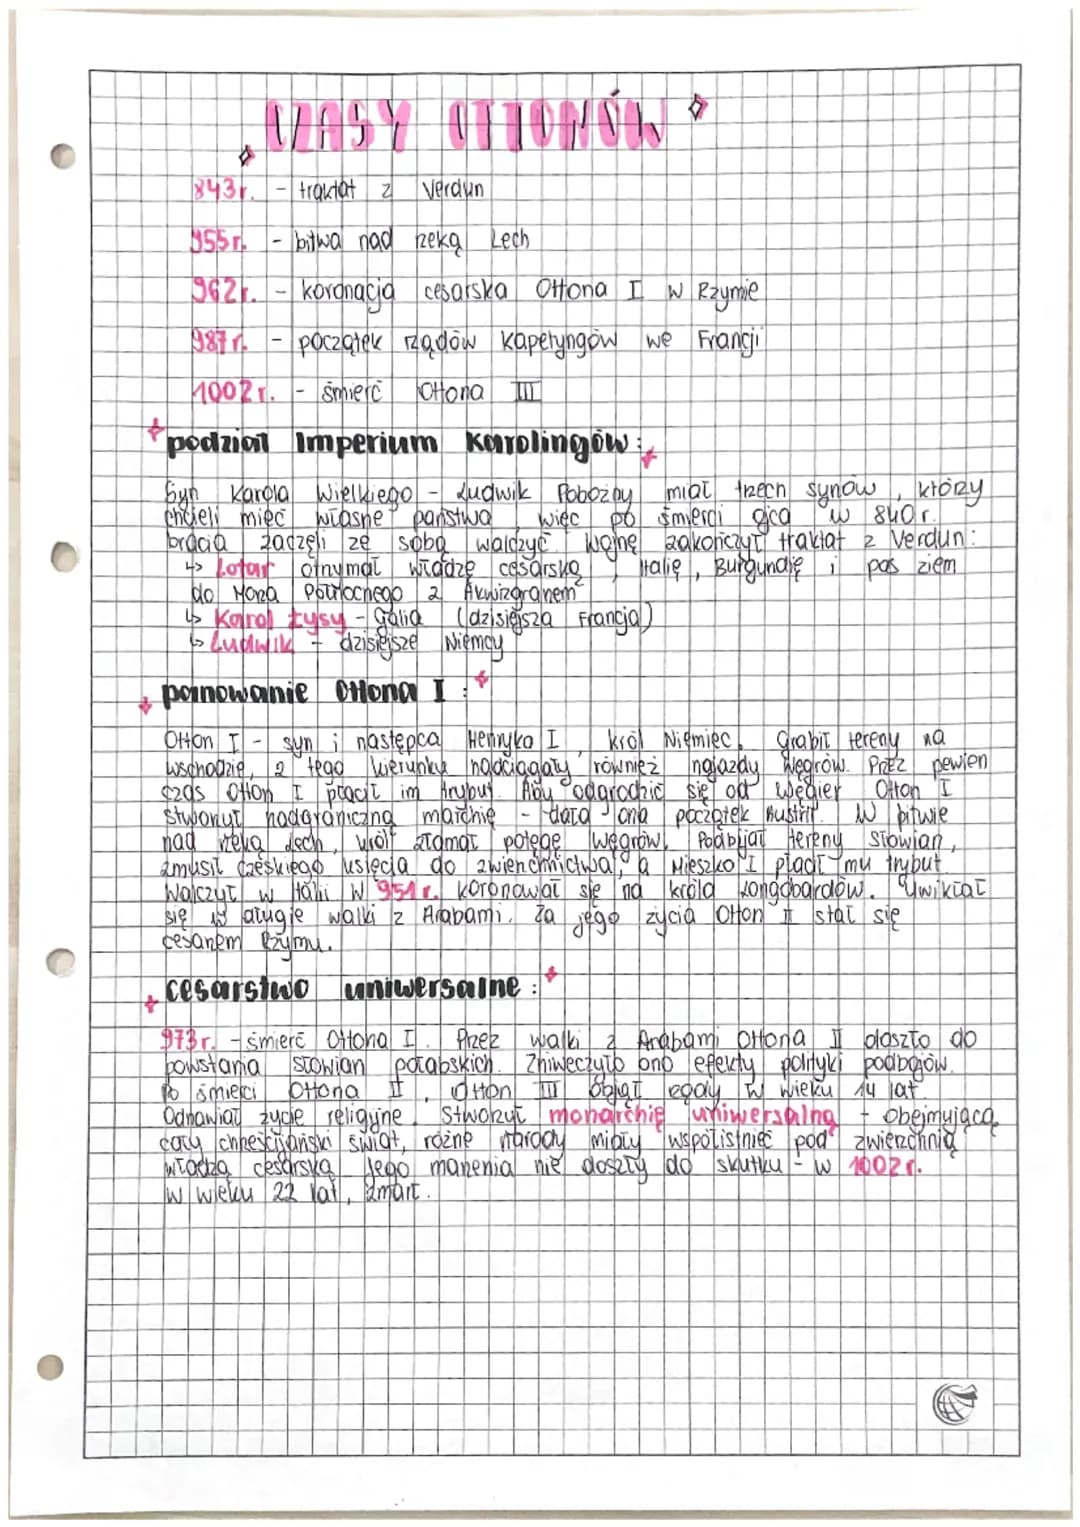 CZASY OTTONÓW
843r. - traktat z Verdun
955r. - bitwa nad rzeką Lech
962r. - koronacja cesarska Ottona I w Rzymie
987r. - początek rządów Kapetyngów we Francji
1002r. - śmierć Ottona III
podział Imperium Karolingów:
Syn Karola Wielkiego - Ludwik Pobożny miał trzech synów, którzy
chcieli mieć własne państwa, więc po śmierci ojca w 840r.
bracia zaczęli ze sobą walczyć. Wojnę zakończył traktat z Verdun:
↳ Lotar otrzymał władzę cesarską, Italię, Burgundię i pas ziem
do Morza Północnego z Akwizgranem
↳ Karol Łysy - Galia (dzisiejsza Francja)
↳ Ludwik - dzisiejsze Niemcy
panowanie Ottona I:
Otton I - syn i następca Henryka I, król Niemiec. Grabił tereny na
wschodzie, z tego kierunku nadciągały również najazdy Węgrów. Przez pewien
czas Otton I płacił im trybut. Aby odgrodzić się od Węgier Otton I
stworzył nadgraniczną marchię - dała ona początek Austrii. W bitwie
nad rzeką Lech, król złamał potęgę Węgrów. Podbijał tereny Słowian,
zmusił czeskiego księcia do zwierzchnictwa, a Mieszko I płacił mu trybut
Walczył w Italii w 951r. koronował się na króla Longobardów. Uwikłał
się w długie walki z Arabami. Za jego życia Otton II stał się
cesarzem Rzymu.
cesarstwo uniwersalne:
973r. - śmierć Ottona I. Przez walki z Arabami Ottona II doszło do
powstania Słowian połabskich. Zniweczyło ono efekty polityki podbojów.
Po śmierci Ottona II, Otton III objął rządy w wieku 14 lat.
Odnawiał życie religijne. Stworzył monarchię uniwersalną - obejmującą
cały chrześcijański świat, różne narody miały współistnieć pod zwierzchnią
władzą cesarską. Jego marzenia nie doszły do skutku - w 1002r.
w wieku 22 lat, zmarł.